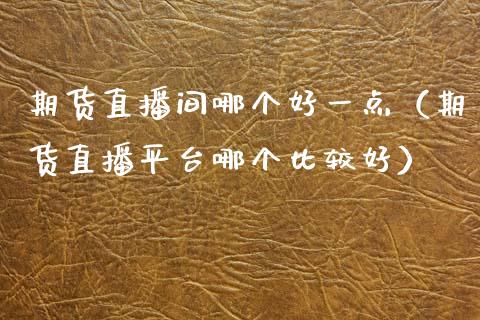 期货直播间哪个好一点（期
货直播平台哪个比较好）